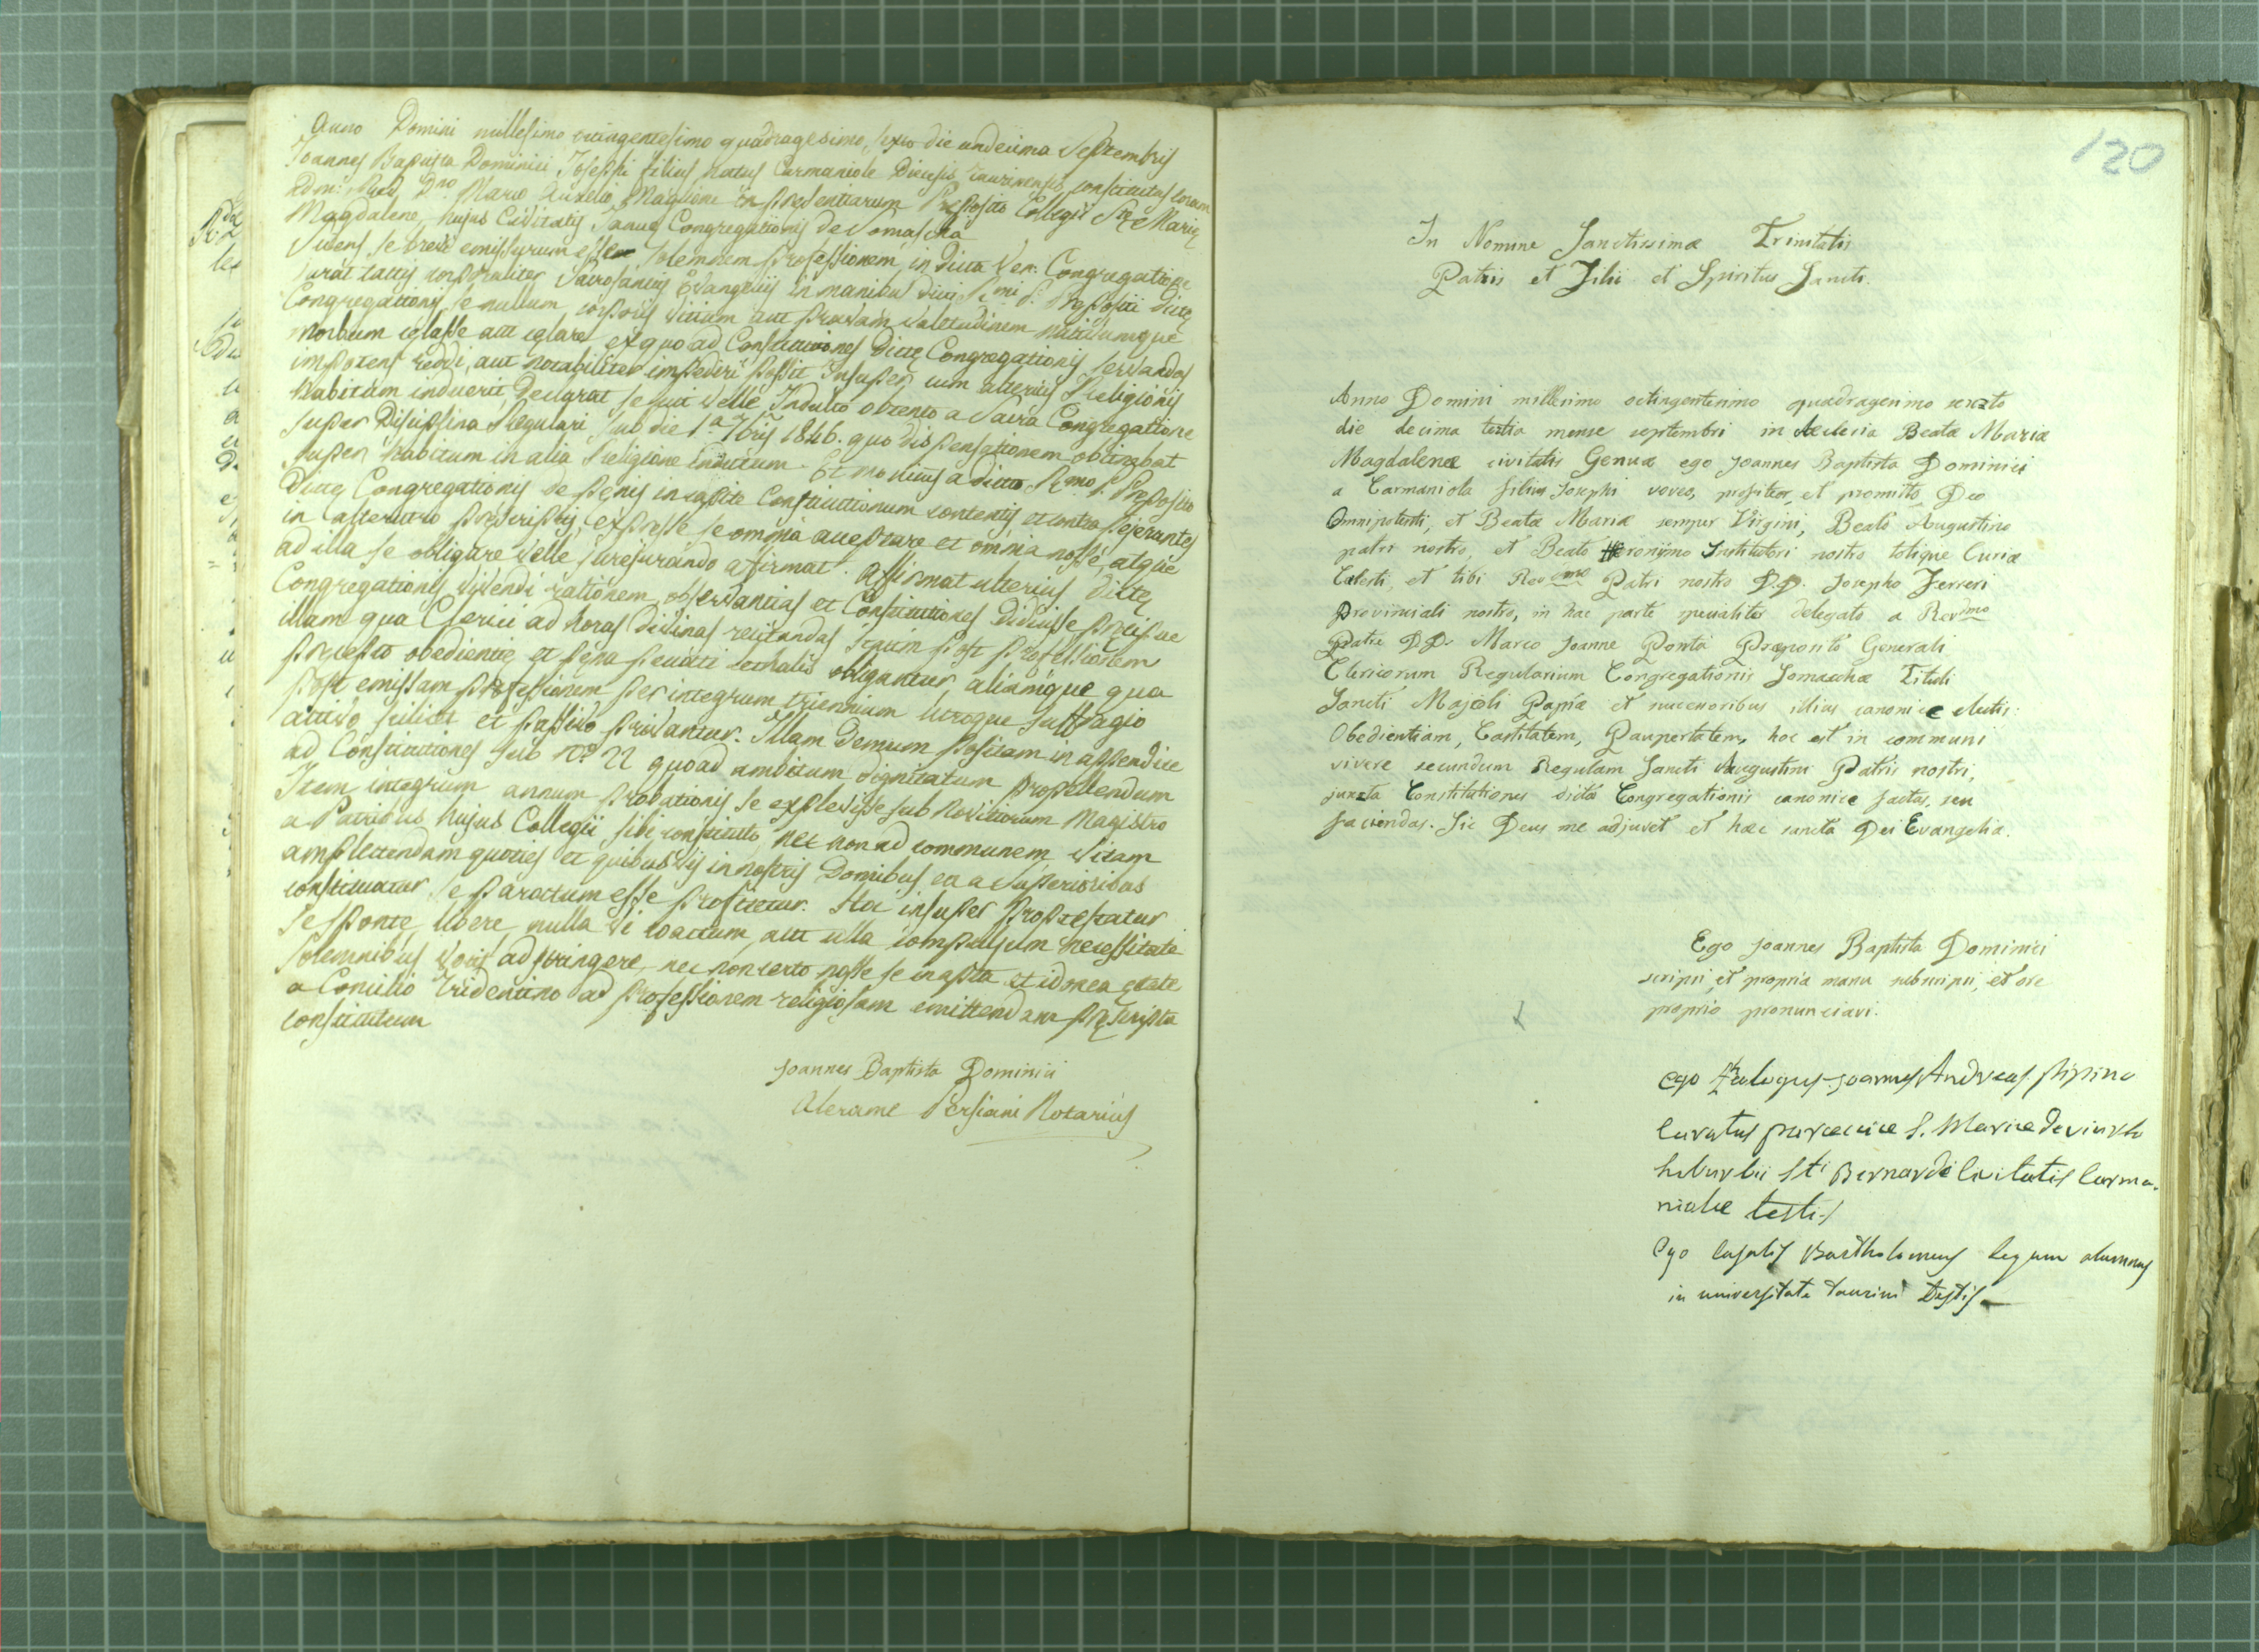 Anno Domini millesimo octingentesimo quadragesimo sexto die undecima Septembris
Joannes Baptista Dominici Josephi filius natus Carmaniole Diecesis Taurinensis constitutus coram
Adm: Rud. Dno. Marco Aurelio Maglione in presentiarum Preposito Collegii Ste Marie
Magdalene, hujus Civitatis Janue Congregationis de Somascha
Sciens se brevi emissurum esse solemnem professionem in dicta Ven. Congregatione
jurat tactis corporaliter Sacrosanctis Evangeliis in manibus dicti Rmi P. Prepositi dicte
Congregationis se nullum corporis vitium aut pravam valetudinem
morbum celasse aut celare ex quo ad Constitutiones Dicte Congregationis servandas
impotens reddi, aut notabiliter impediri possit Insuper cum alterius Religionis
habitum induerit, Declarat se uti velle Indulto obtento a Sacra Congregatione
super Disciplina Regulari sub die 1a 7bris 1846. quo dispensationem obtinebat
super habitum in alia Religione indutum. Et monitus a dicto Rmo P. Preposito
Dicte Congregationis de penis in capite Constitutionum contentis et contra pejerantes
in alterutro prescriptis, expresse se omnia acceptare et omnia nosse, atque
ad illa se obligare velle jurejurando afirmat. Affirmat ulterius dicte
Congregationis vivendi rationem, observantias et Constitutiones Didicisse precipue
illam qua Clerici ad horas Divinas recitandas sequin post professionem
precepto obedientie et pena peccati lethalis obligantur, aliamque qua
post emissam professionem per integrum triennium utroque suffragio
activo scilicet et passivo privantur. Illam demum positam in appendice
ad Constitutiones sub No. 22 quoad ambitum dignitatum propellendum
Item integrum annum probationis se explevisse sub Novitiorum Magistro
a Patribus hujus Collegii sibi constituto, nec non ad communem vitam
amplectendam quoties et quibusvis in nostris Domibus ea a Superioribus
constituatur se paratum esse profitetur. Hoc insuper protestatur
se sponte, libere, nulla vi coactum, aut ulla compulsum necessitate
solemnibus votis adstringere, nec non certo nosse se in apta et idonea etate
a Concilio Tridentino ad professionem religiosam emittendam prescripta
constitutum
Joannes Baptista Dominici
Alerame Persiani Notarius
120
In Nomine Sanctissimæ Trinitatis
Patris et Filii et Spiritus Sancti.
Anno Domini millesimo octingentesimo quadragesimo sexto
die decima tertia mense septembri in Æcclesia Beatæ Mariæ
Magdalenæ civitatis Genuæ ego Joannes Baptista Dominici
a Carmaniola filius Josephi voveo, profiteor, et promitto Deo
Omnipotenti, et Beatæ Mariæ semper Virgini, Beato Augustino
patri nostro, et Beato Hieronimo Institutori nostro totique Curiæ
Cælesti, et tibi Revme Patri nostro D.D. Josepho Ferreri
Provinciali nostro, in hac parte specialiter delegato a Revmo
Patre D.D. Marco Joanne Ponta Præposito Generali
Clericorum Regularium Congregationis Somaschæ Tituli
Sancti Majoli Papiæ et successoribus illius canonice electis:
Obedientiam, Castitatem, Paupertatem, hoc est in communi
vivere secundum Regulam Sancti Augustini Patris nostri,
juxta Constitutiones dictæ Congregationis canonice factas, seu
faciendas. Sic Deus me adjuvet et hæc sancta Dei Evangelia.
Ego Joannes Baptista Dominici
scripsi, et propria manu subscripsi, et ore
proprio pronunciavi.
ego Joannes Andreas Pipino
Curatus S. Mariæ de
suburbii Sti Bernardi Civitatis Carma-
niolæ testis
Ego Casalis Bartholomeus legum alumnus
in universitate Taurini Testis